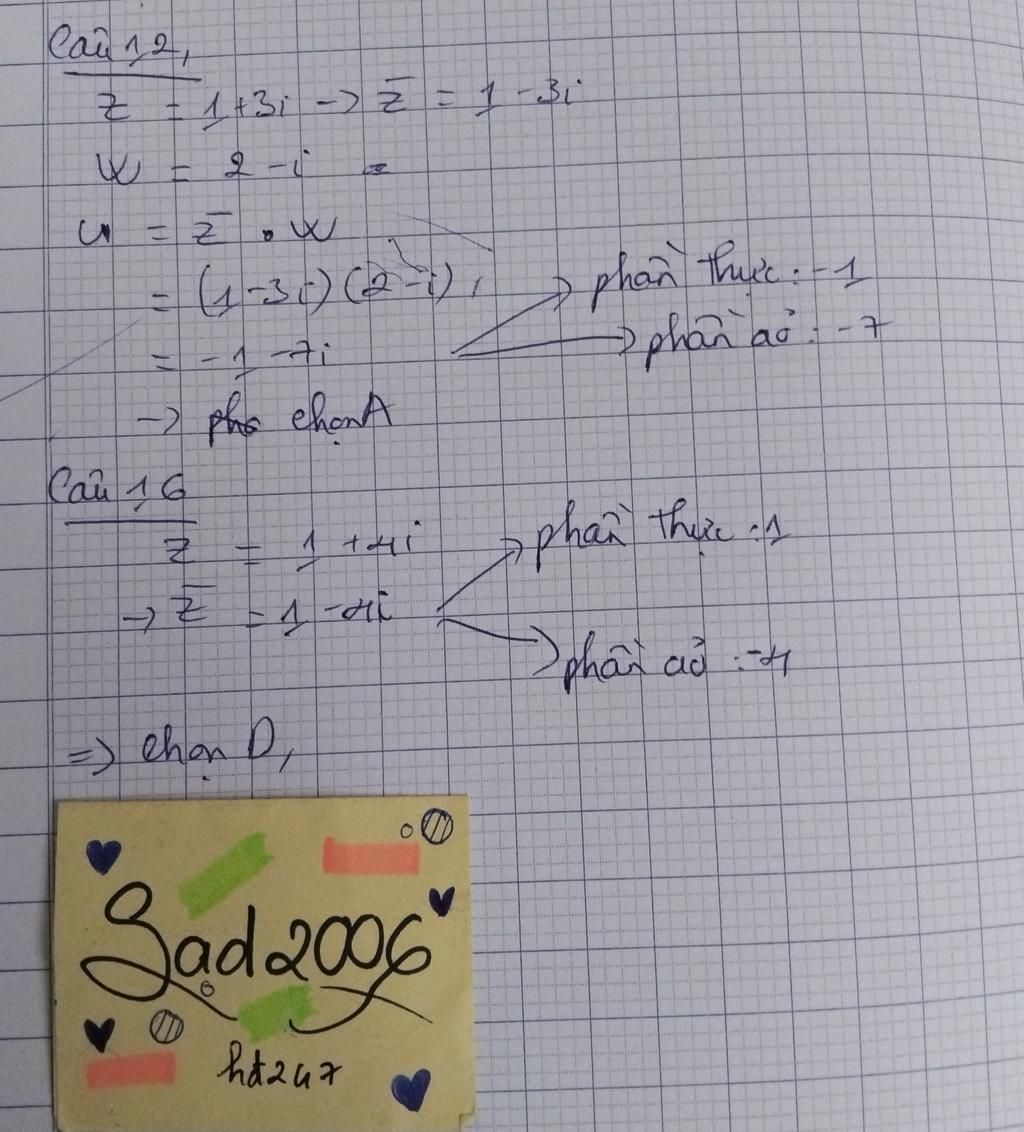 Câu 12,
z = 1+3i -> z̅ = 1 - 3i
W = 2 - i =
u = z̅ . W
= (1 - 3i) (2 - i),
phần thực: -1
= -1 - 7i
phần ảo: -7
-> chọn A
Câu 16
z = 1 + 4i
phần thực: 1
-> z̅ = 1 - 4i
phần ảo: -4
=> chọn D,
Sad2006
hđ247